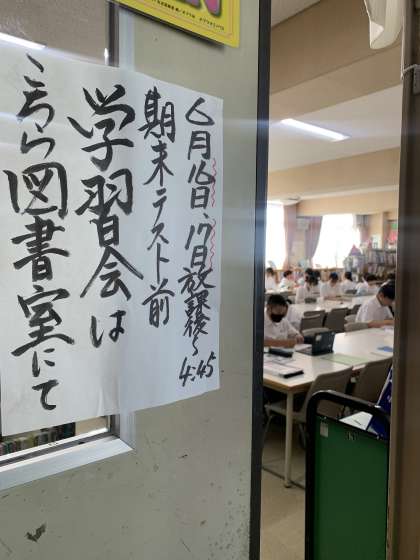 6月16日、17日放課後〜4:45
期末テスト前
学習会は
こちら図書室にて